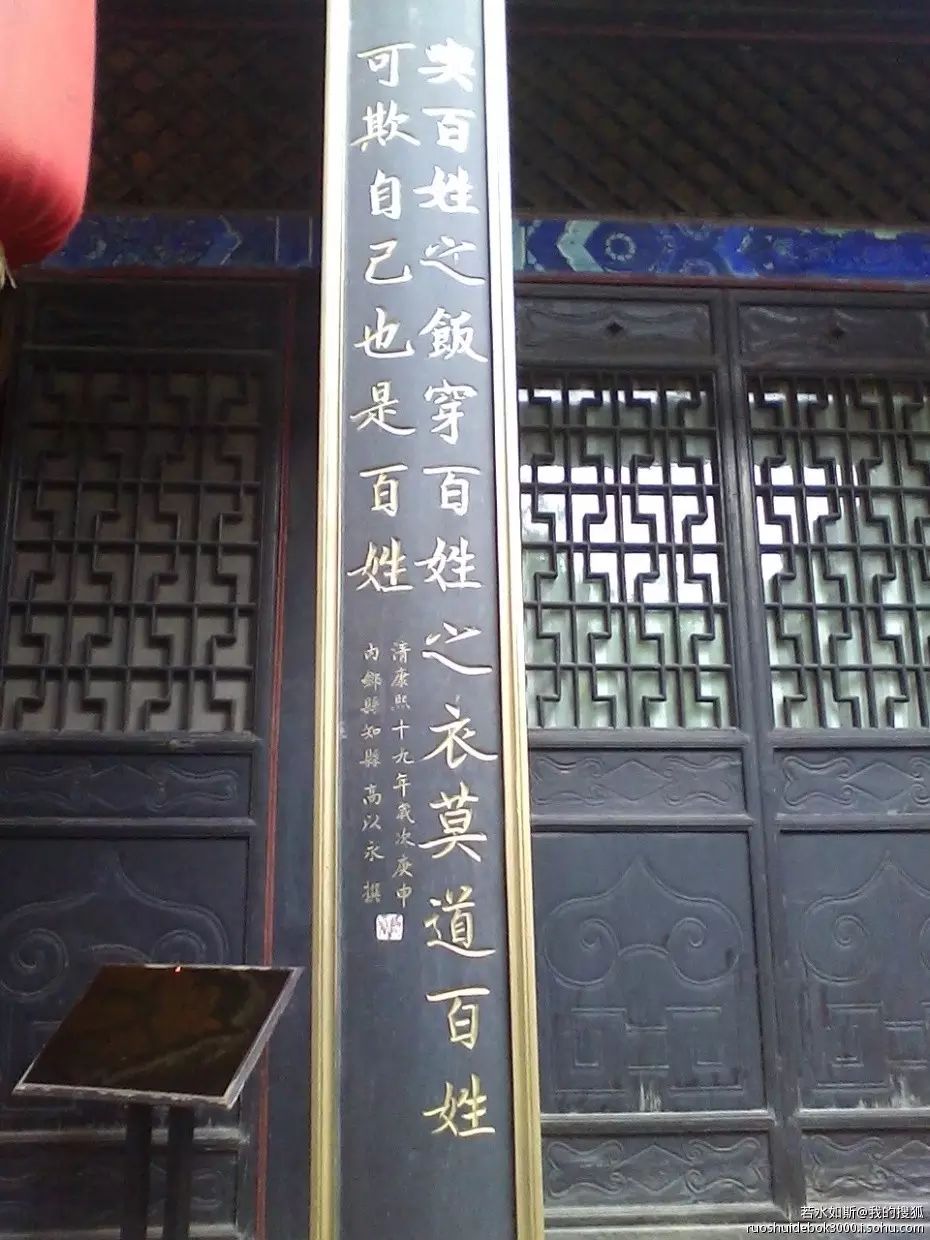 喫百姓之飯穿百姓之衣莫道百姓
可欺自己也是百姓
清康熙十九年歲次庚申
内鄉縣知縣高以永撰
若水如斯@我的搜狐
ruoshuidebok3000.i.sohu.com